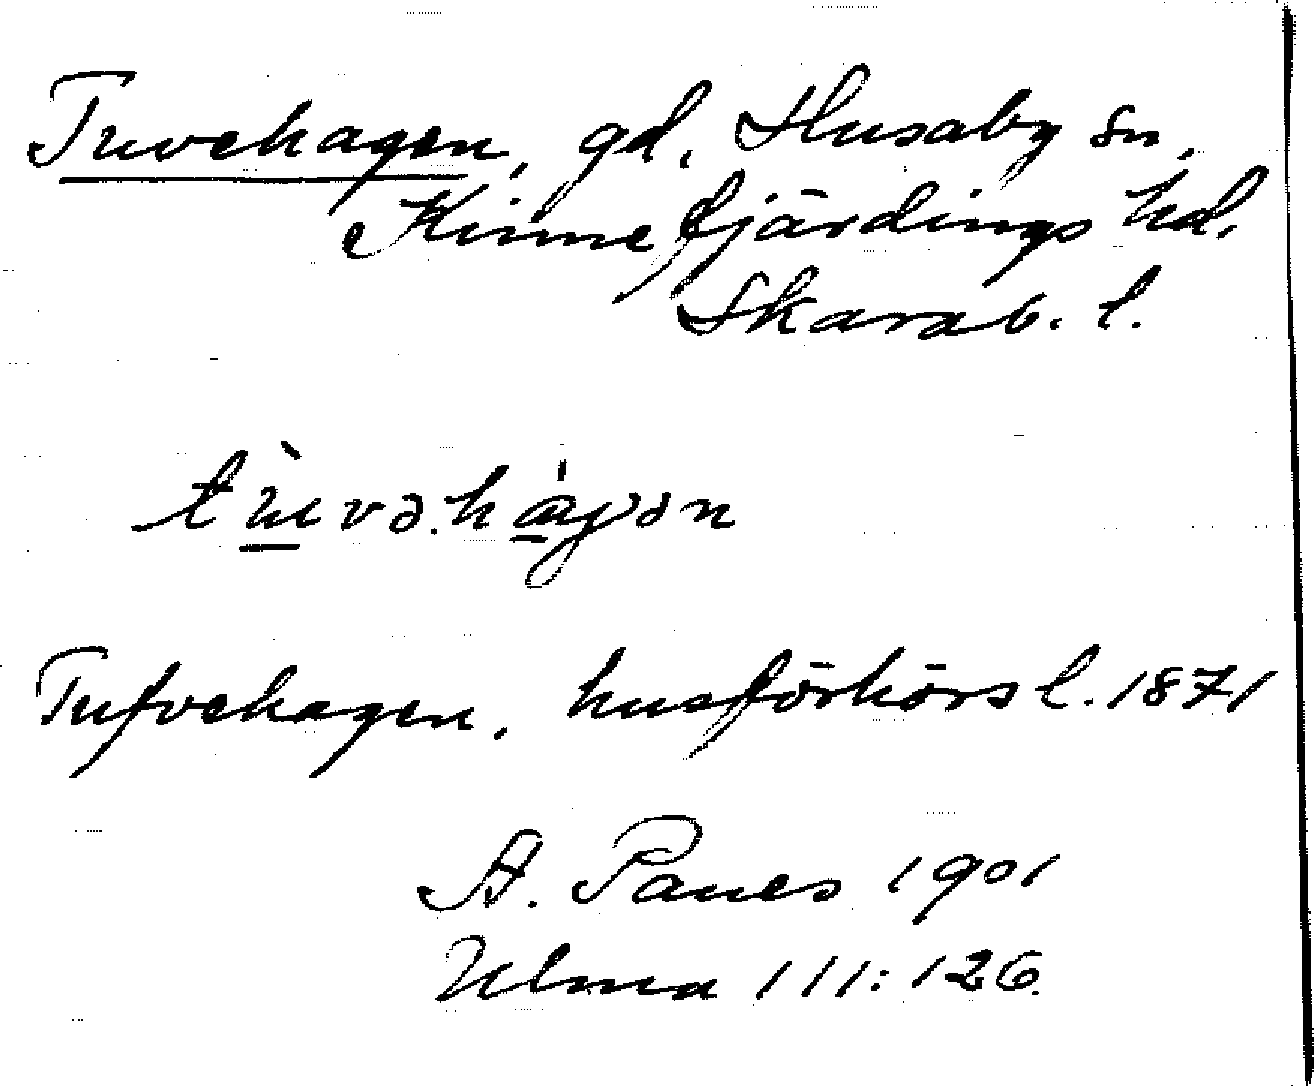 Tuvehagen, gd, Husaby sn,
Kinnefjärdings hd,
Skarab. l.
tùvə.hágən
Tufvehagen, husförhörsl. 1871
A. Paues 1901
Ulma 111:126.